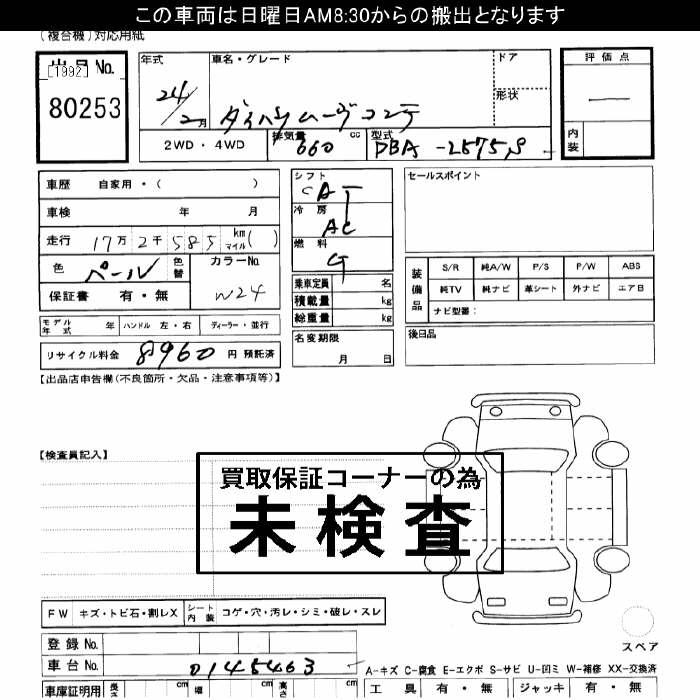 この車両は日曜日AM8:30からの搬出となります
(複合機)対応用紙
出品No.
[1992]
80253
年式
24/2月
車名・グレード
ダイハツムーヴコンテ
ドア
形状
評価点
内装
2WD・4WD
排気量 660 cc
型式 DBA-L575S
車歴 自家用・( )
車検 年 月
走行 17万2千585 km マイル( )
色 パール 色替
カラーNo. W24
保証書 有・無
シフト CAT
冷房 AC
燃料 G
乗車定員 名
積載量 kg
総重量 kg
名変期限
月 日
セールスポイント
装備品
S/R 純A/W P/S P/W ABS
純TV 純ナビ 革シート 外ナビ エアB
ナビ型番:
後日品
モデル年式 年 ハンドル 左・右 ディーラー・並行
リサイクル料金 8960 円 預託済
【出品店申告欄(不良箇所・欠品・注意事項等)】
【検査員記入】
買取保証コーナーの為
未検査
FW キズ・トビ石・割レX シート内装 コゲ・穴・汚レ・シミ・破レ・スレ
登録No.
車台No. 0145463
スペア
A-キズ C-腐食 E-エクボ S-サビ U-凹ミ W-補修 XX-交換済
車庫証明用 長さ cm 幅 cm 高さ cm
工具 有・無 ジャッキ 有・無